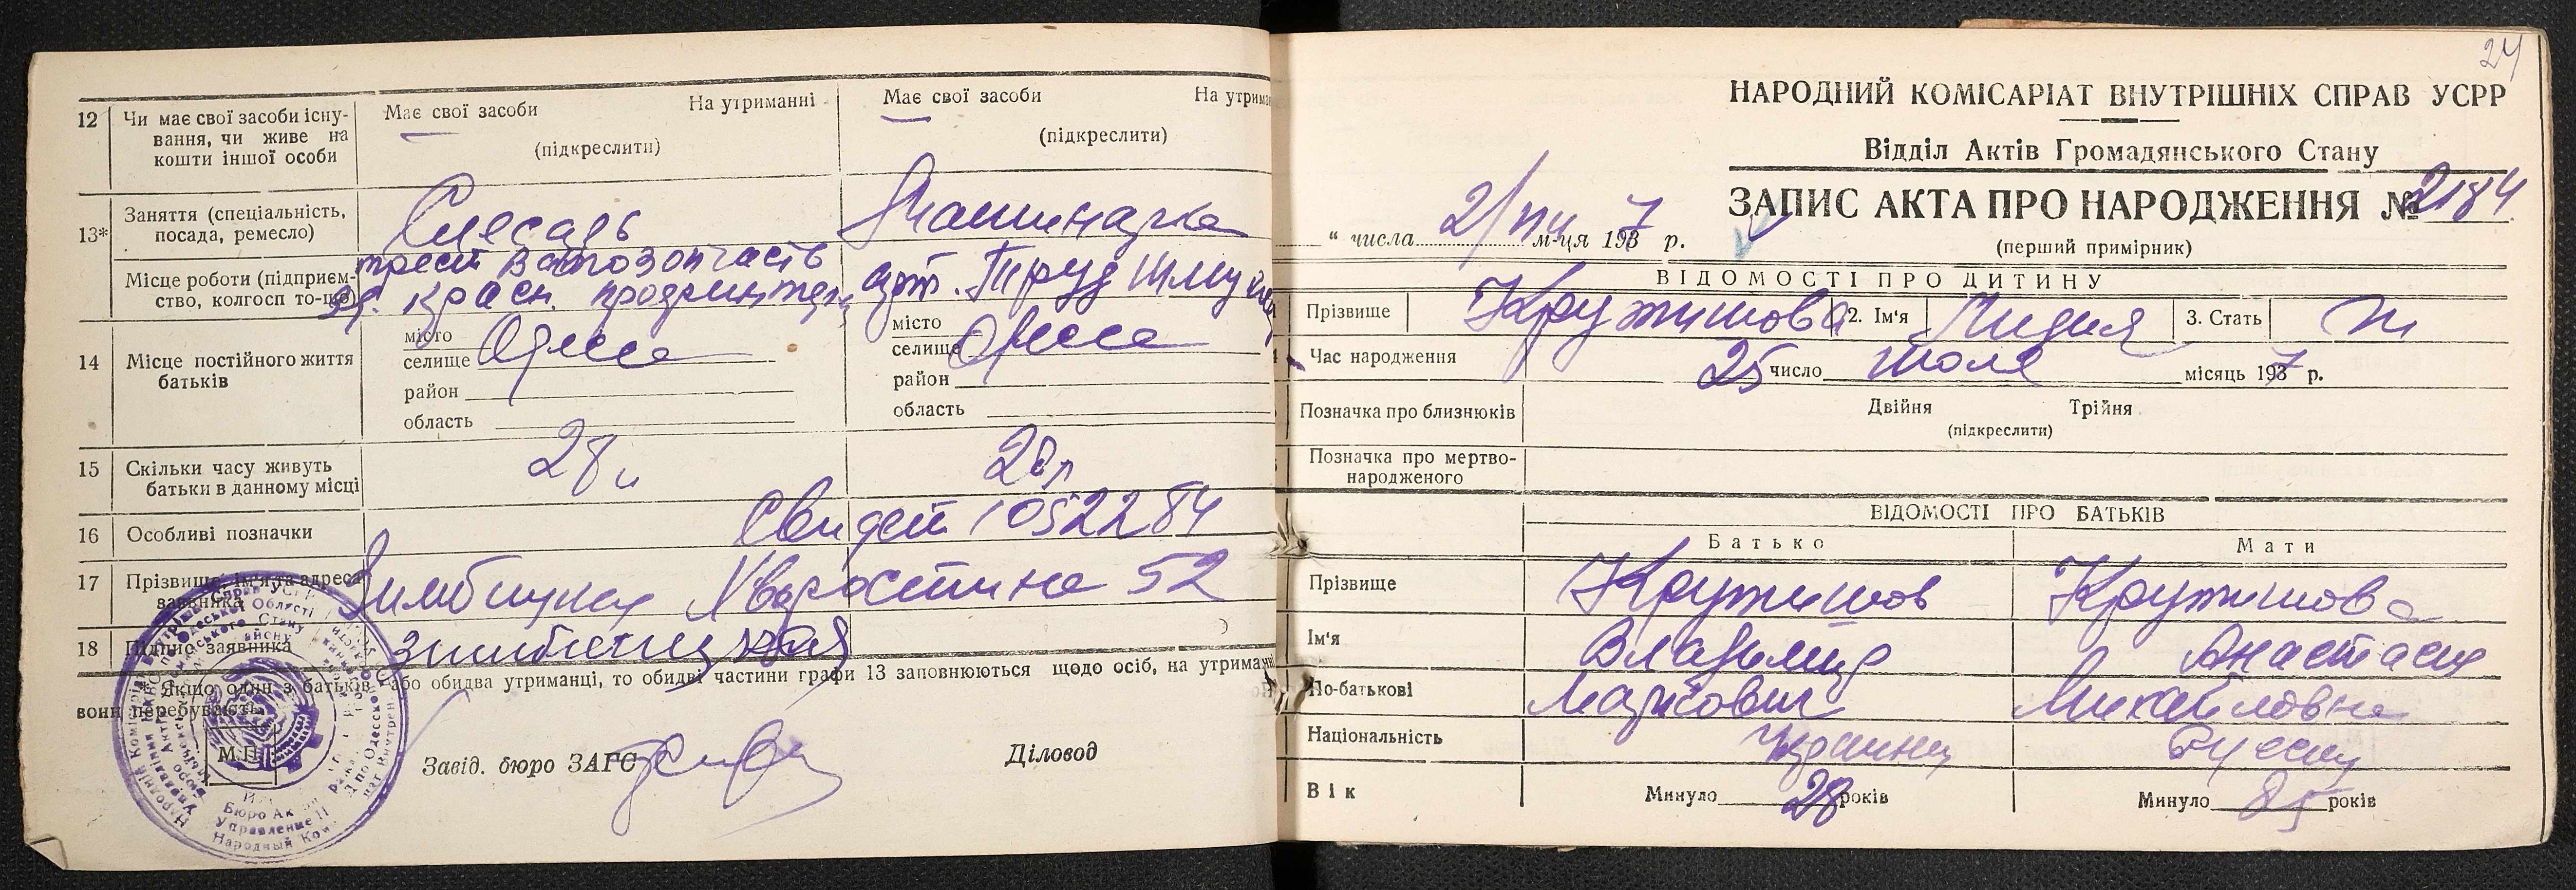 12 Чи має свої засоби існування, чи живе на кошти іншої особи
Має свої засоби На утриманні
(підкреслити)
Має свої засоби На утрима
(підкреслити)
13* Заняття (спеціальність, посада, ремесло)
Слесарь
Машинарка
Місце роботи (підприємство, колгосп то-що)
трест
арт. Труд
14 Місце постійного життя батьків
місто
селище Одесса
район
область
місто
селище Одесса
район
область
15 Скільки часу живуть батьки в данному місці
28
20л
16 Особливі позначки
Свидет 1052284
17 Прізвище, ім'я та адреса заявника
Хворостина 52
18 Підпис заявника
* Якщо один з батьків або обидва утриманці, то обидві частини графи 13 заповнюються щодо осіб, на утриманні
вони перебувають.
М.П.
Завід. бюро ЗАГС
Діловод
24
НАРОДНИЙ КОМІСАРІАТ ВНУТРІШНІХ СПРАВ УСРР
Відділ Актів Громадянського Стану
ЗАПИС АКТА ПРО НАРОДЖЕННЯ № 2184
" числа 2/VIII м-ця 1937 р.
(перший примірник)
ВІДОМОСТІ ПРО ДИТИНУ
Прізвище Кружишова 2. Ім'я Лидия 3. Стать ж
Час народження 25 число июля місяць 1937 р.
Позначка про близнюків Двійня Трійня
(підкреслити)
Позначка про мертвонародженого
ВІДОМОСТІ ПРО БАТЬКІВ
Батько Мати
Прізвище Кружишов Кружишова
Ім'я Владимир Анастасия
По-батькові Михайловна
Національність
Вік Минуло 28 років Минуло 25 років